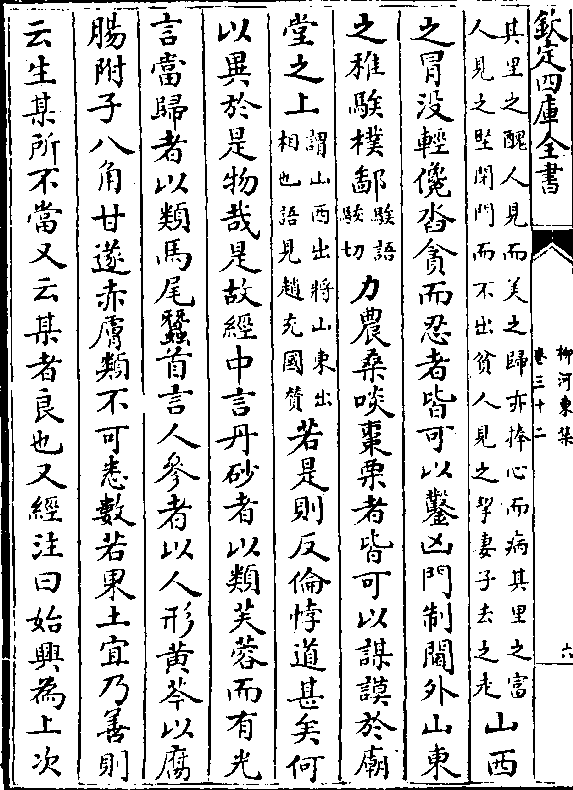 欽定四庫全書
柳河東集
卷三十二
六
其里之醜人見而美之歸亦捧心而病其里之富
人見之堅閉門而不出貧人見之挈妻子去之走
山西
之冒没輕儳沓貪而忍者皆可以鑿凶門制閫外山東
之稚騃樸鄙
騃語
駭切
力農桑啖棗栗者皆可以謀謨於廟
堂之上
謂山西出將山東出
相也語見趙充國賛
若是則反倫悖道甚矣何
以異於是物哉是故經中言丹砂者以類芙蓉而有光
言當歸者以類馬尾蠶首言人參者以人形黄芩以腐
腸附子八角甘遂赤膚類不可悉數若果土宜乃善則
云生某所不當又云某者良也又經注曰始興為上次